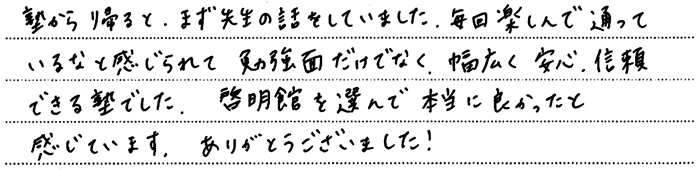 塾から帰ると、まず先生の話をしていました。毎回楽しんで通って
いるなと感じられて 勉強面だけでなく、幅広く 安心、信頼
できる塾でした。 啓明館を選んで 本当に良かったと
感じています。 ありがとうございました!